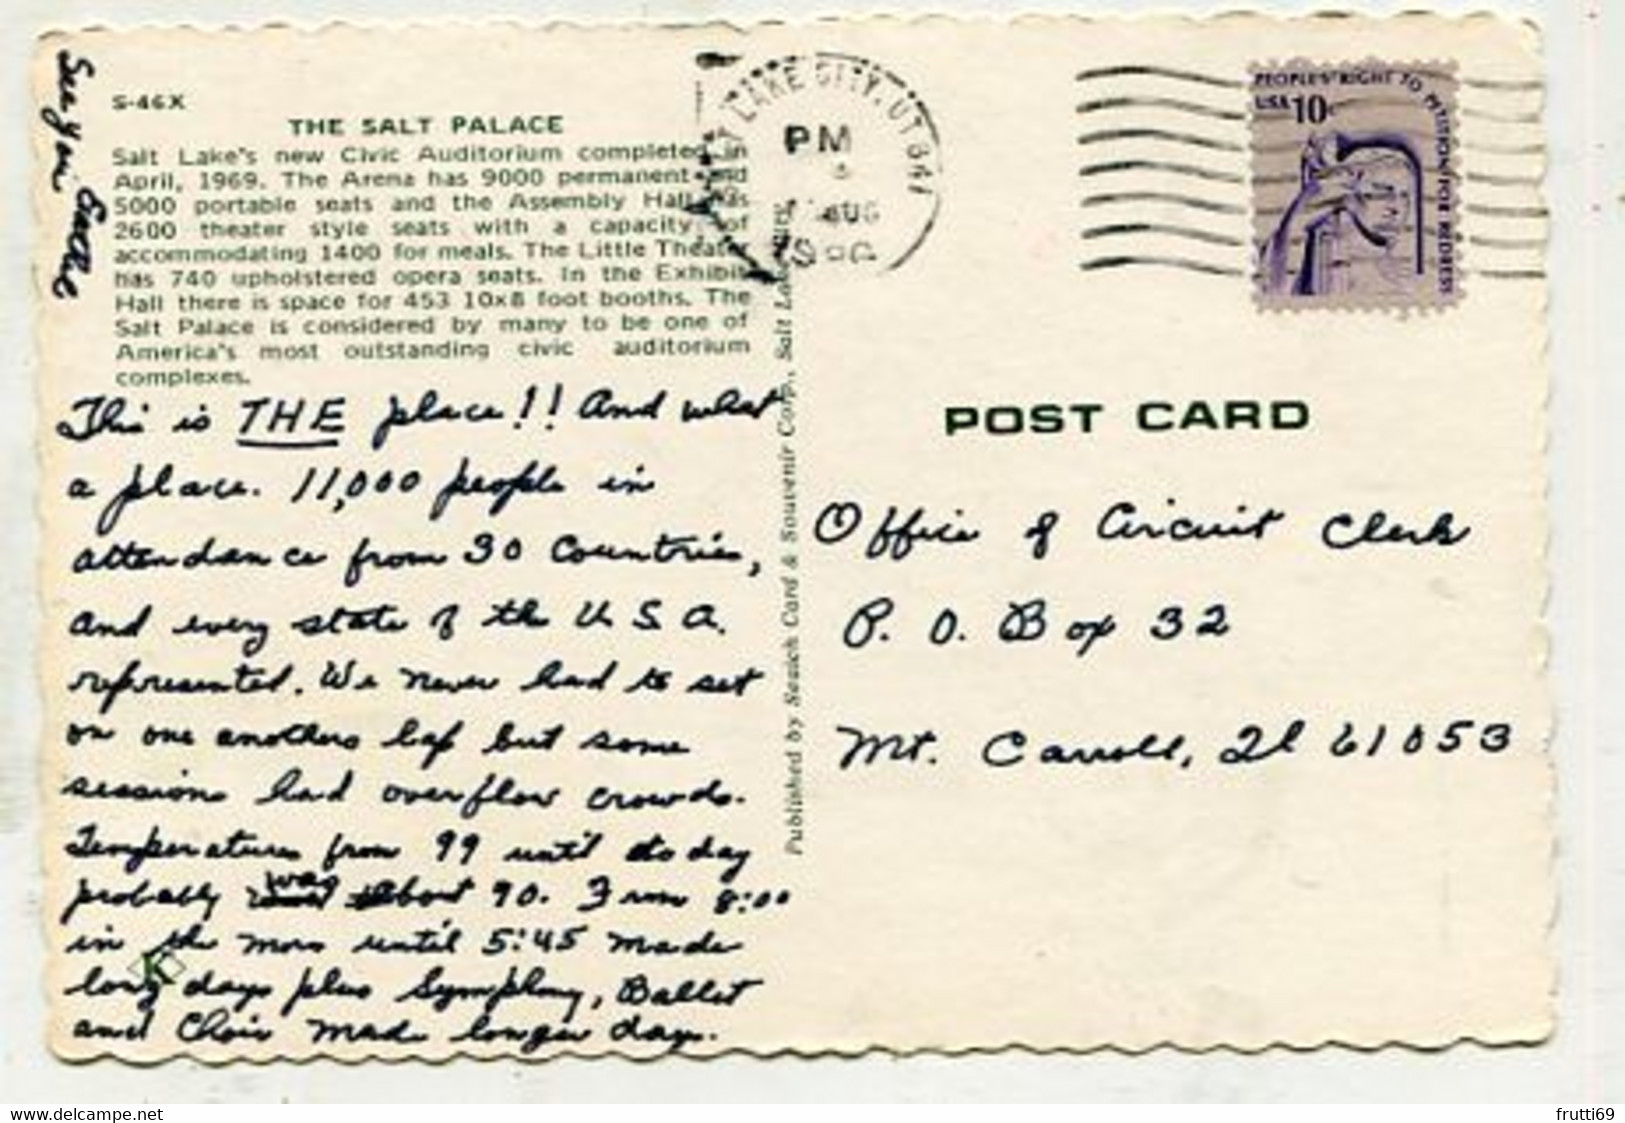 S-46X
THE SALT PALACE
Salt Lake's new Civic Auditorium completed in
April, 1969. The Arena has 9000 permanent and
5000 portable seats and the Assembly Hall has
2600 theater style seats with a capacity of
accommodating 1400 for meals. The Little Theater
has 740 upholstered opera seats. In the Exhibit
Hall there is space for 453 10x8 foot booths. The
Salt Palace is considered by many to be one of
America's most outstanding civic auditorium
complexes.
This is THE place!! And what
a place. 11,000 people in
attendance from 30 Countries,
and every state of the U S A.
represented. We never had to set
on one anothers lap but some
sessions had overflow crowds.
Temperatures from 99 until today
probably was about 90. From 8:00
in the morn until 5:45 made
long days plus Symphony, Ballet
and Choir made longer days.
See you
Published by Seaich Card & Souvenir Corp., Salt Lake
LAKE CITY, UT 841
PM
AUG
PEOPLE'S RIGHT TO PETITION FOR REDRESS
USA 10c
POST CARD
Office of Circuit Clerk
P. O. Box 32
Mt. Carroll, Il 61053
www.delcampe.net
frutti69